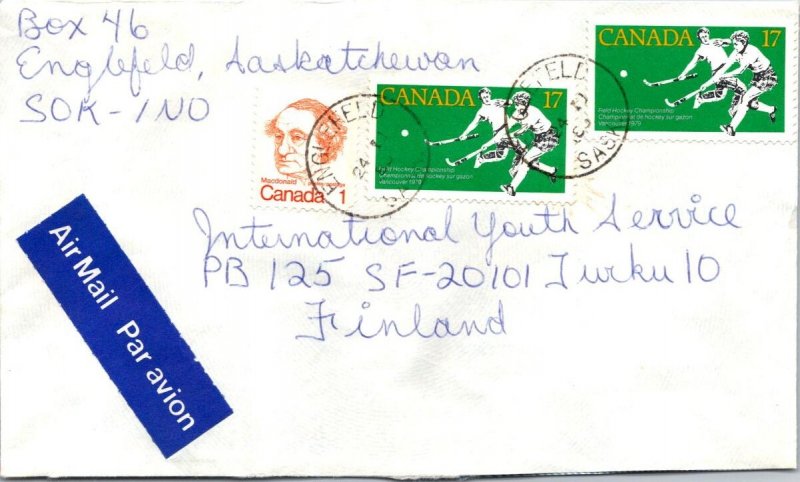 Box 46
Englefeld, Saskatchewan
S0K-1N0
CANADA 17
Field Hockey Championship
Championnat de hockey sur gazon
Vancouver 1979
CANADA 17
Field Hockey Championship
Championnat de hockey sur gazon
Vancouver 1979
Macdonald
Canada 1
ENGLEFELD
24
SASK
International Youth Service
PB 125 SF-20101 Turku 10
Finland
Air Mail Par avion